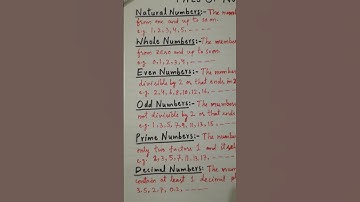 TYPES OF NU
Natural Numbers:- The num
from one and up to so on.
e.g. 1, 2, 3, 4, 5, - - - -
Whole Numbers:- The number
from zero and up to so on
e.g. 0, 1, 2, 3, 4, - - - -
Even Numbers:- The number
divisible by 2 or that ends in
e.g. 2, 4, 6, 8, 10, 12, 14, - - -
Odd Numbers:- The number
not divisible by 2 or that ends
e.g. 1, 3, 5, 7, 9, 11, 13, 15 - - -
Prime Numbers:- The number
only two factors 1 and itself
e.g. 2, 3, 5, 7, 11, 13, 17, - - -
Decimal Numbers:- The num
contain at least 1 decimal p
3.5, 2.7, 0.2, - - - -